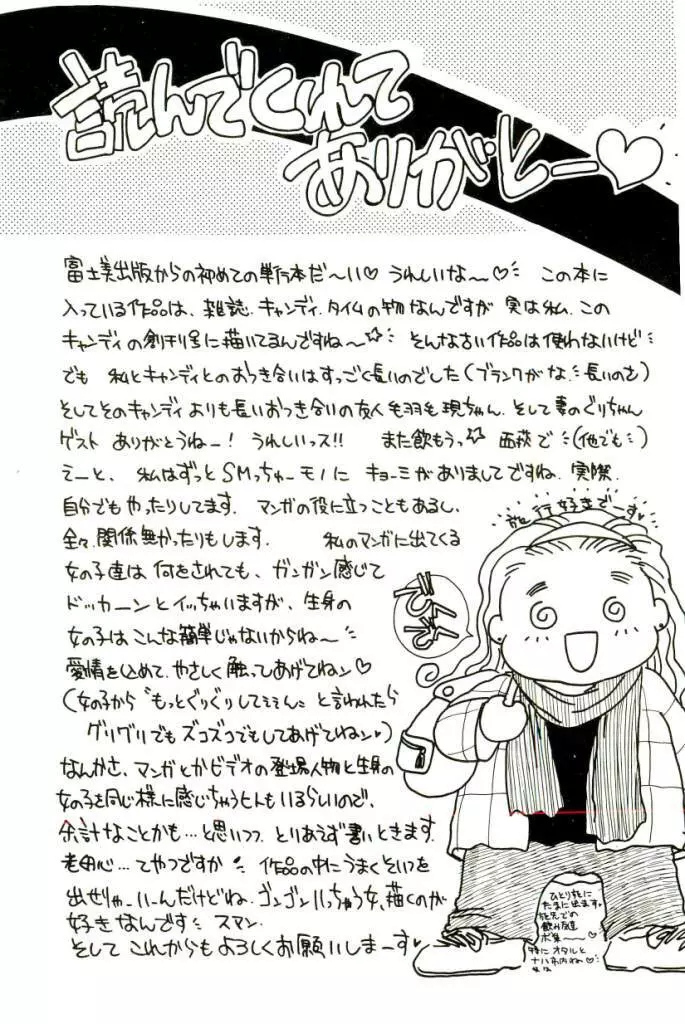 読んでくれて
ありがとー♡
富士美出版からの初めての単行本だ〜い♡ うれしいな〜♡ この本に
入っている作品は、雑誌.キャンディ.タイムの物なんですが 実は私.この
キャンディの創刊号に描いてるんですね〜☆ そんな古い作品は使わないけど
でも 私とキャンディとのおつき合いはすっごく長いのでした(ブランクがな.長いのさ)
そしてそのキャンディよりも長いおつき合いの友人 毛羽毛現ちゃん. そして妻のぐりちゃん
ゲスト ありがとうねー! うれしいっス!! また飲もうっ☆ 西荻で (他でも)
えーと、 私はずっとSMっちゅーモノに キョーミがありましてですね. 実際.
自分でもやったりしてます. マンガの役に立つこともあるし、
全々.関係無かったりもします. 私のマンガに出てくる
女の子達は 何をされても、ガンガン感じて
ドッカーンとイッちゃいますが、生身の
女の子は こんな簡単じゃないからね〜
愛情を込めて. やさしく 触ってあげてねン♡
(女の子から〝もっとぐりぐりしてぇぇん〟と言われたら
グリグリでもズコズコでもしてあげてねン♡)
なんかさ、マンガとかビデオの登場人物と生身の
女の子を同じ様に感じちゃうヒトもいるらしいので、
余計なことかも…と思いつつ とりあえず書いときます.
老婆心…てやつですか 作品の中にうまくそいつを
出せりゃーいーんだけどね. ゴンゴンいっちゃう女、描くのが
好きなんです スマン.
そして これからも よろしくお願いしまーす♥
旅行好きでーす♥
ひとり旅に
たまに出ます。
旅先での
飲み友達
ボ集〜〜♡
特に オタルと